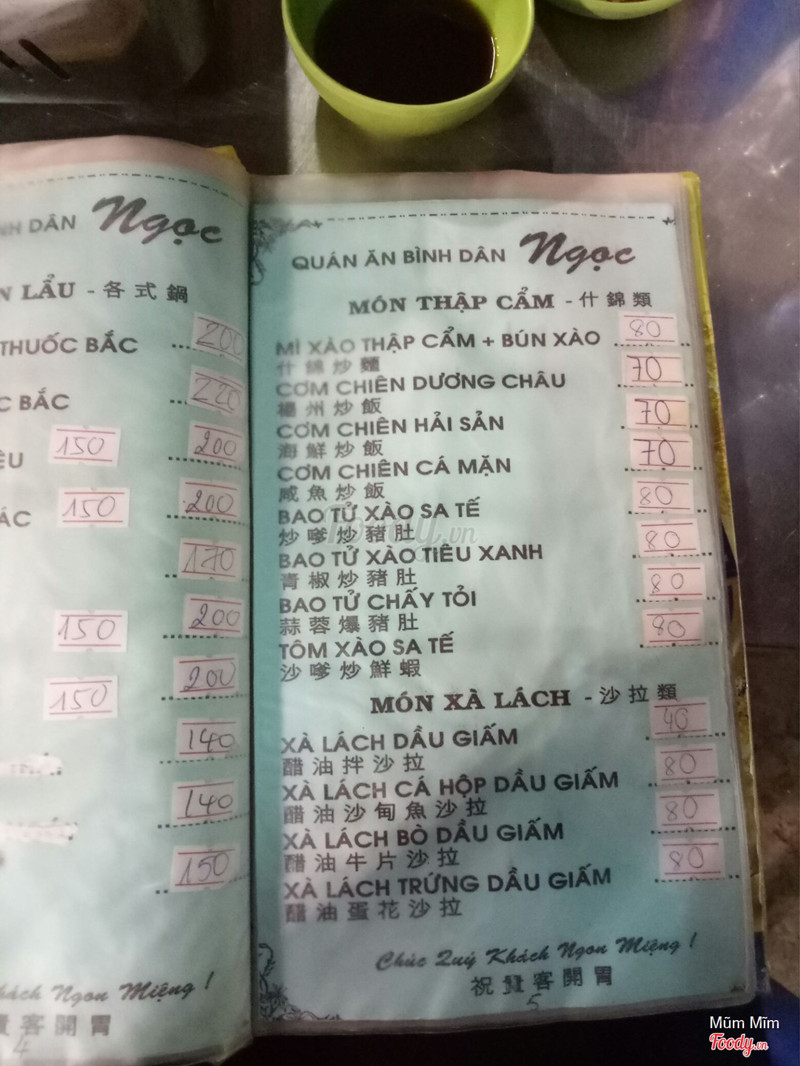 NH DÂN Ngọc
N LẨU - 各式鍋
THUỐC BẮC 200
C BẮC 220
ÊU 150 200
ÁC 150 200
170
150 200
150 200
140
140
150
hách Ngon Miệng !
賓客開胃
4
QUÁN ĂN BÌNH DÂN Ngọc
MÓN THẬP CẨM - 什錦類
MÌ XÀO THẬP CẨM + BÚN XÀO 80
什錦炒麵
CƠM CHIÊN DƯƠNG CHÂU 70
楊州炒飯
CƠM CHIÊN HẢI SẢN 70
海鮮炒飯
CƠM CHIÊN CÁ MẶN 70
咸魚炒飯
BAO TỬ XÀO SA TẾ 80
炒嗲炒豬肚
BAO TỬ XÀO TIÊU XANH 80
青椒炒豬肚
BAO TỬ CHẤY TỎI 80
蒜蓉爆豬肚
TÔM XÀO SA TẾ 80
沙嗲炒鮮蝦
MÓN XÀ LÁCH - 沙拉類
XÀ LÁCH DẦU GIẤM 40
醋油拌沙拉
XÀ LÁCH CÁ HỘP DẦU GIẤM 80
醋油沙甸魚沙拉
XÀ LÁCH BÒ DẦU GIẤM 80
醋油牛片沙拉
XÀ LÁCH TRỨNG DẦU GIẤM 80
醋油蛋花沙拉
Chúc Quý Khách Ngon Miệng !
祝賓客開胃
5
Foody.vn
Mũm Mĩm
Foody.vn